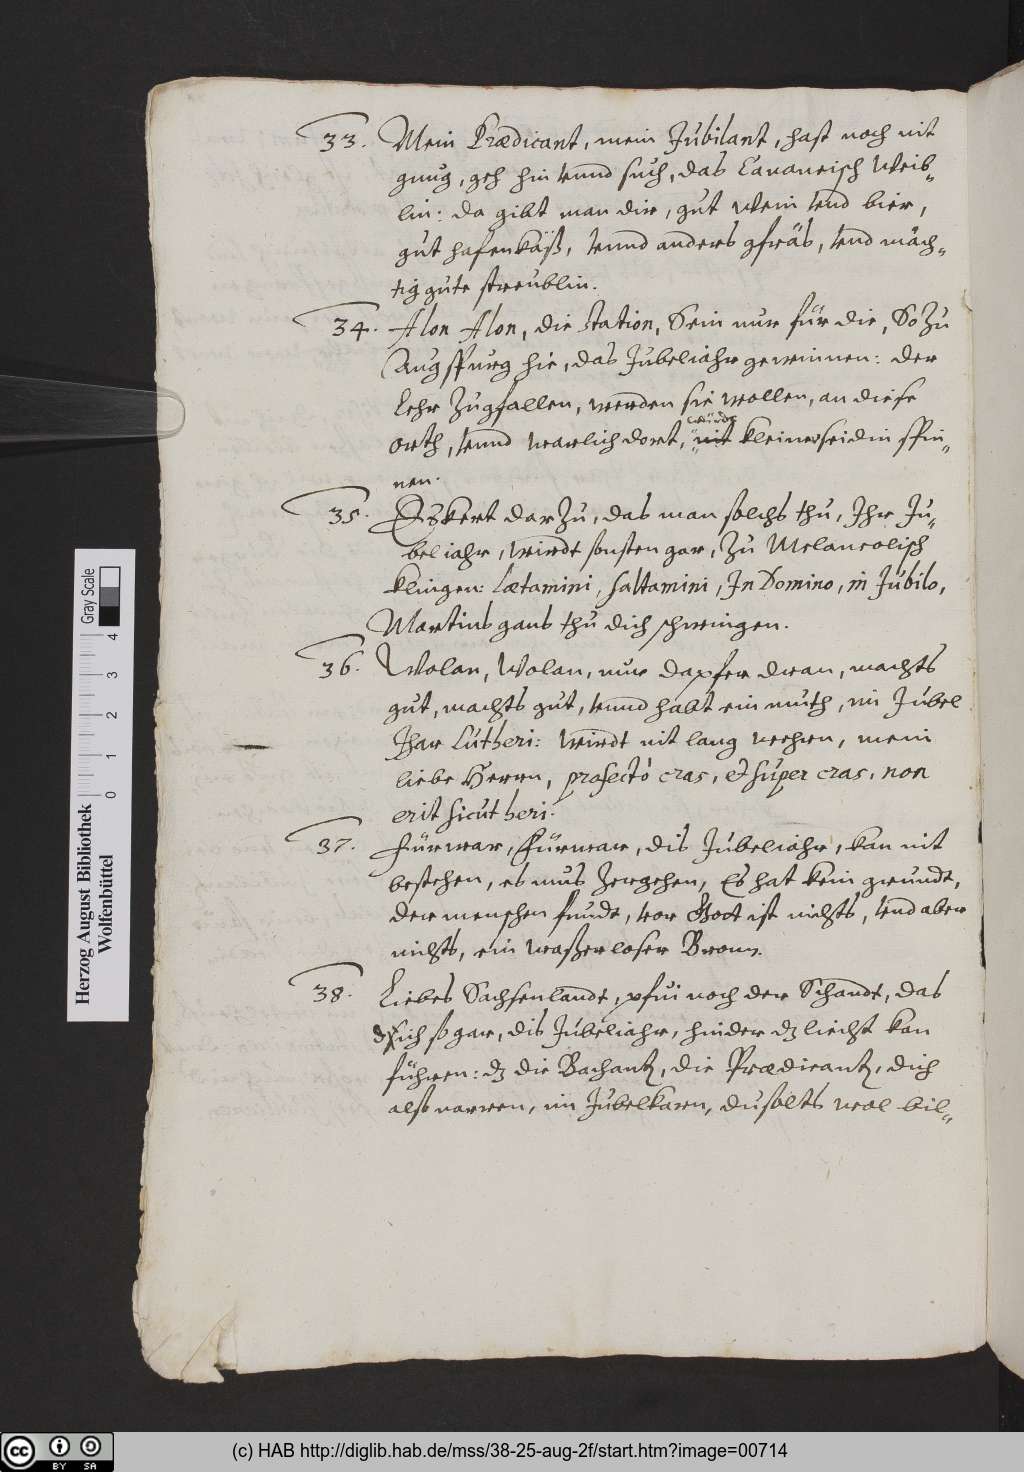 33. Mein Prædicant, mein Jubilant, hast noch nit
gnug, geh hin vnnd such, das Cananeisch Weib„
lin: da gibt man dir, gut Wein vnd bier,
gut hafenkäß, vnnd anders gfräs, vnd mäch„
tig gute streublin.
34. Alon Alon, die station, Sein nur für die, So Zu
Augspurg hie, das Jubeliahr gewinnen: der
Lehr Zugfallen, werden sie wollen, an diese
orth, vnnd warlich dort, nit kleiner seidin spin„
würdt
nen.
35. Eskert dar Zu, das man solchs thu, Ihr Ju„
bel iahr, wirdt sonsten gar, Zu Melancolisch
klingen: Lætamini, saltamini, In Domino, in Jubilo,
Martins gans thu dich schwingen.
36. Wolan, Wolan, nur dapfer dran, machts
gut, machts gut, vnnd habt ein muth, im Jubel
Jhar Lutheri: Wirdt nit lang wehren, mein
liebe Herrn, profectò cras, et super cras, non
erit sicut heri.
37. Fürwar, Fürwar, dis Jubeliahr, kan nit
bestehen, es mus Zergehen, Es hat kein grundt,
der menschen fundt, vor Gott ist nichts, vnd aber
nichts, ein waßerloser Bronn.
38. Liebes Sachsenlandt, pfui noch der Schandt, das
sich so gar, dis Jubeliahr, hinder dz liecht kan
führen: dz die Bachantz, die Prædicantz, dich
also narren, im Jubelkarn, du solts wol bil„
Herzog August Bibliothek
Wolfenbüttel
Gray Scale
0 1 2 3 4
cc BY SA
(c) HAB http://diglib.hab.de/mss/38-25-aug-2f/start.htm?image=00714